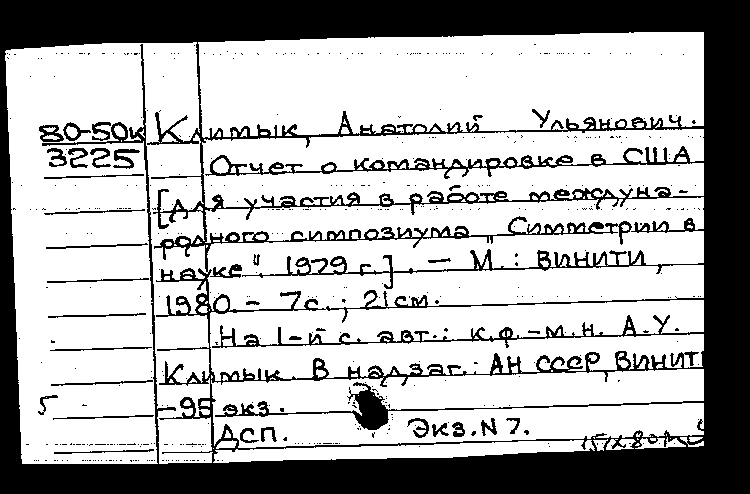 80-50к Климык, Анатолий Ульянович.
3225 Отчет о командировке в США
[для участия в работе междуна-
родного симпозиума „Симметрии в
науке“. 1979 г.]. – М.: ВИНИТИ,
1980. – 7с.; 21см.
На 1-й с. авт.: к.ф.-м.н. А.У.
Климык. В надзаг.: АН СССР, ВИНИТИ
5 – 95 экз.
ДСП. Экз. N 7.